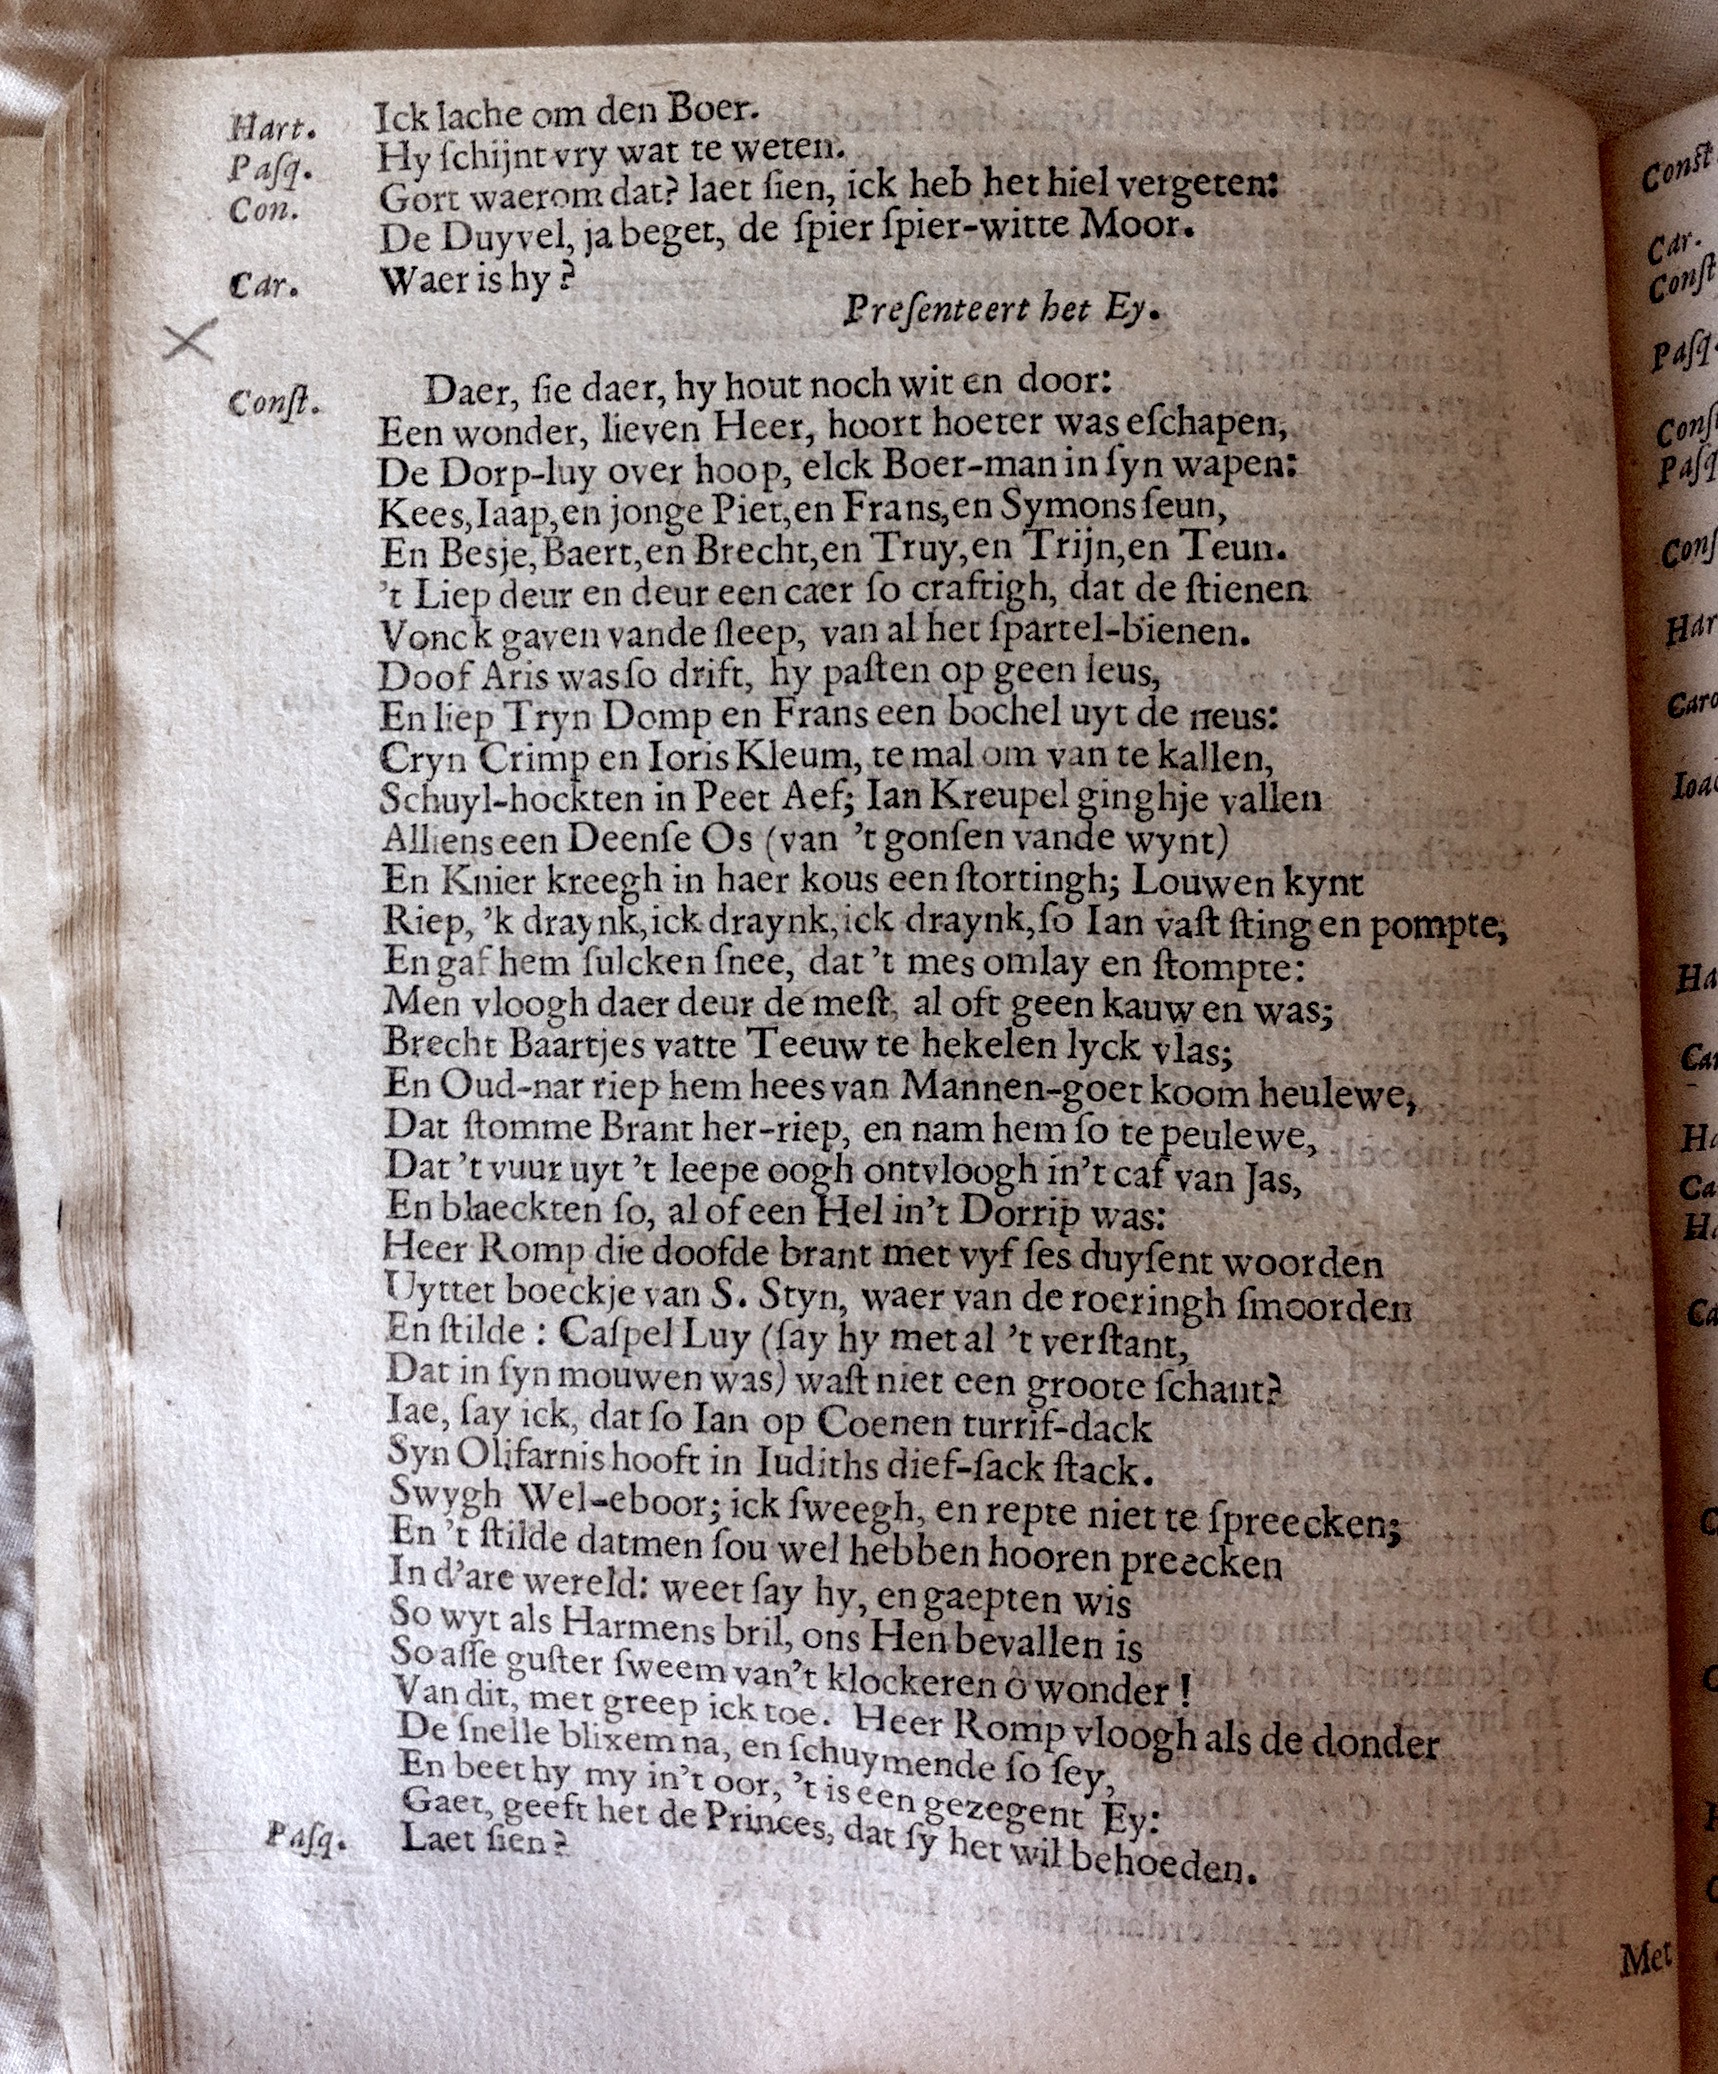 Hart. Ick lache om den Boer.
Paſq. Hy ſchijnt vry wat te weten.
Con. Gort waerom dat? laet ſien, ick heb het hiel vergeten:
De Duyvel, ja beget, de ſpier ſpier-witte Moor.
Car. Waer is hy?
Preſenteert het Ey.
Conſt. Daer, ſie daer, hy hout noch wit en door:
Een wonder, lieven Heer, hoort hoeter was eſchapen,
De Dorp-luy over hoop, elck Boer-man in ſyn wapen:
Kees, Iaap, en jonge Piet, en Frans, en Symons ſeun,
En Besje, Baert, en Brecht, en Truy, en Trijn, en Teun.
't Liep deur en deur een caer ſo craftigh, dat de ſtienen
Vonck gaven vande ſleep, van al het ſpartel-bienen.
Doof Aris was ſo drift, hy paſten op geen leus,
En liep Tryn Domp en Frans een bochel uyt de neus:
Cryn Crimp en Ioris Kleum, te mal om van te kallen,
Schuyl-hockten in Peet Aef; Ian Kreupel ginghje vallen
Alliens een Deenſe Os (van 't gonſen vande wynt)
En Knier kreegh in haer kous een ſtortingh; Louwen kynt
Riep, 'k draynk, ick draynk, ick draynk, ſo Ian vaſt ſting en pompte,
En gaf hem ſulcken ſnee, dat 't mes omlay en ſtompte:
Men vloogh daer deur de meſt, al oft geen kauwen was;
Brecht Baartjes vatte Teeuw te hekelen lyck vlas;
En Oud-nar riep hem hees van Mannen-goet koom heulewe,
Dat ſtomme Brant her-riep, en nam hem ſo te peulewe,
Dat 't vuur uyt 't leepe oogh ontvloogh in't caf van Jas,
En blaeckten ſo, al of een Hel in't Dorrip was:
Heer Romp die doofde brant met vyf ſes duyſent woorden
Uyttet boeckje van S. Styn, waer van de roeringh ſmoorden
En ſtilde : Caſpel Luy (ſay hy met al 't verſtant,
Dat in ſyn mouwen was) waſt niet een groote ſchant?
Iae, ſay ick, dat ſo Ian op Coenen turrif-dack
Syn Olifarnis hooft in Iudiths dief-ſack ſtack.
Swygh Wel-eboor; ick ſweegh, en repte niet te ſpreecken;
En 't ſtilde datmen ſou wel hebben hooren preecken
In d'are wereld: weet ſay hy, en gaepten wis
So wyt als Harmens bril, ons Hen bevallen is
So aſſe guſter ſweem van't klockeren ô wonder!
Van dit, met greep ick toe. Heer Romp vloogh als de donder
De ſnelle blixem na, en ſchuymende ſo ſey,
En beet hy my in't oor, 't is een gezegent Ey:
Gaet, geeft het de Princes, dat ſy het wil behoeden.
Paſq. Laet ſien?
Met
Conſt
Car.
Conſt
Paſq.
Conſ
Paſq
Conſ
Har
Caro
Ioa
Ha
Car
Ha
Ca
Ha
Ca